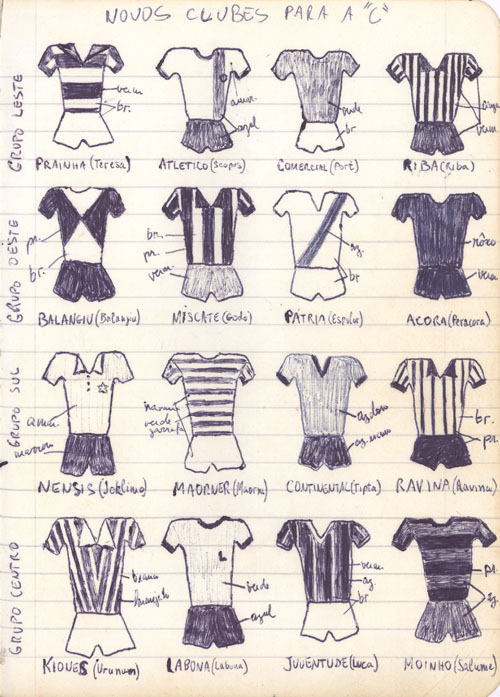 NOVOS CLUBES PARA A "C"
GRUPO LESTE
verm
br.
amar.
azul
verde
br
verm
PRAINHA (Teresa)
ATLETICO (Scopus)
COMERCIAL (Port)
RIBA (Riba)
GRUPO OESTE
pr.
br.
br.
pr.
verm
az.
br
rôxo
verm
BALANGIU (Balangiu)
MISCATE (Godo)
PÁTRIA (Espulur)
ACORA (Peracora)
GRUPO SUL
amar
marrom
verde
garrafa
az. claro
az. escuro
br.
pr.
NENSIS (Joklino)
MAORNER (Maorni)
CONTINENTAL (Tipta)
RAVINA (Ravina)
GRUPO CENTRO
branco
laranja
verde
azul
verm
az.
br
pr.
az.
KIOVES (Urunum)
LABONA (Labona)
L
JUVENTUDE (Luca)
MOINHO (Salume)